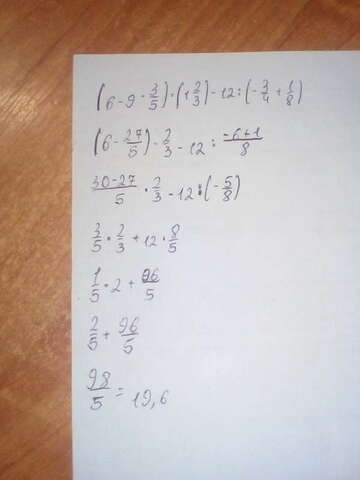 (6-9·3/5)·(1 2/3)-12:(-3/4+1/8)
(6-27/5)·2/3-12:-6+1/8
30-27/5·2/3-12:(-5/8)
3/5·2/3+12·8/5
1/5·2+96/5
2/5+96/5
98/5=19,6